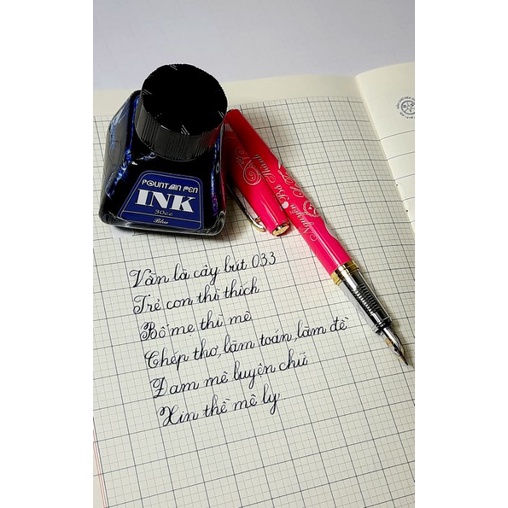 FOUNTAIN PEN
INK
30cc
Blue
Vẫn là cây bút 033
Trẻ con thì thích
Bố mẹ thì mê
Chép thơ, làm toán, làm đề
Đam mê luyện chữ
Xin thề mê ly